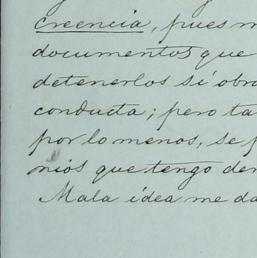 creencia, pues m
documentos que
detenerlos si obra
conducta; pero ta
por lo menos, se p
nios que tengo der
Mala idea me da